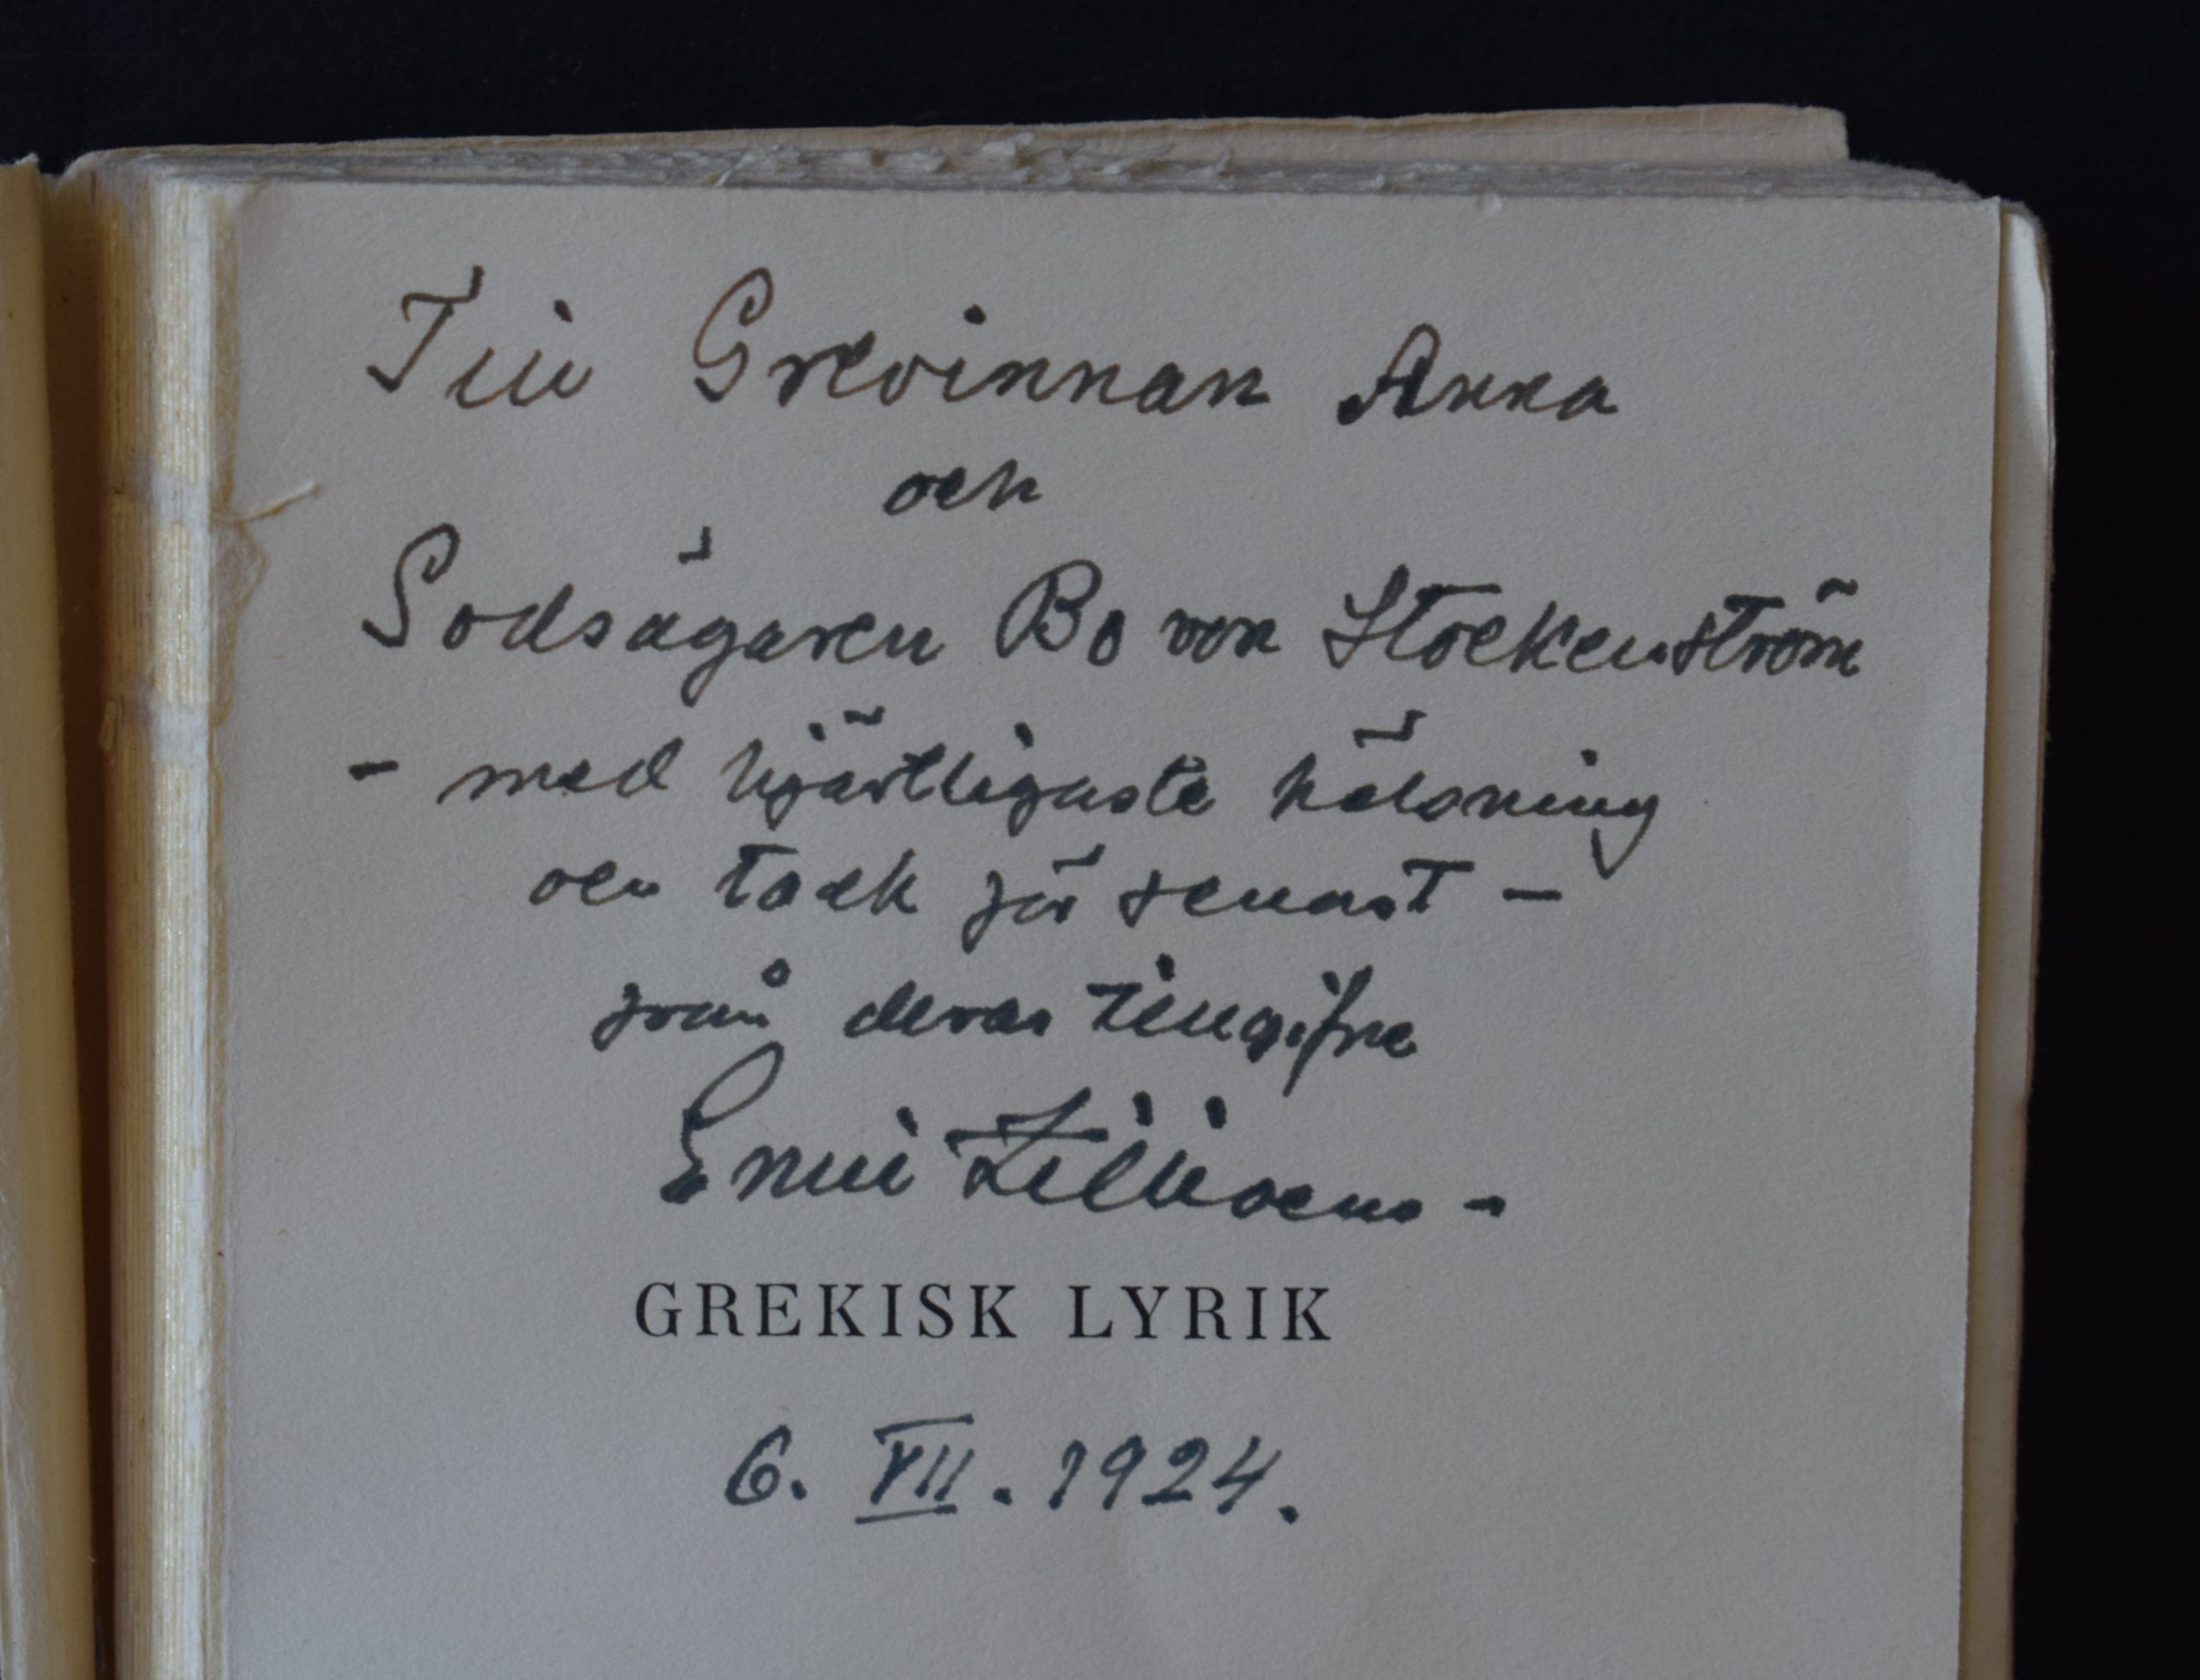 Till Grevinnan Anna
och
Godsägaren Bo von Stockenström
- med hjärtligaste hälsning
och tack för senast -
från deras tillgifne
Emil Zilliacus -
GREKISK LYRIK
6. VII. 1924.